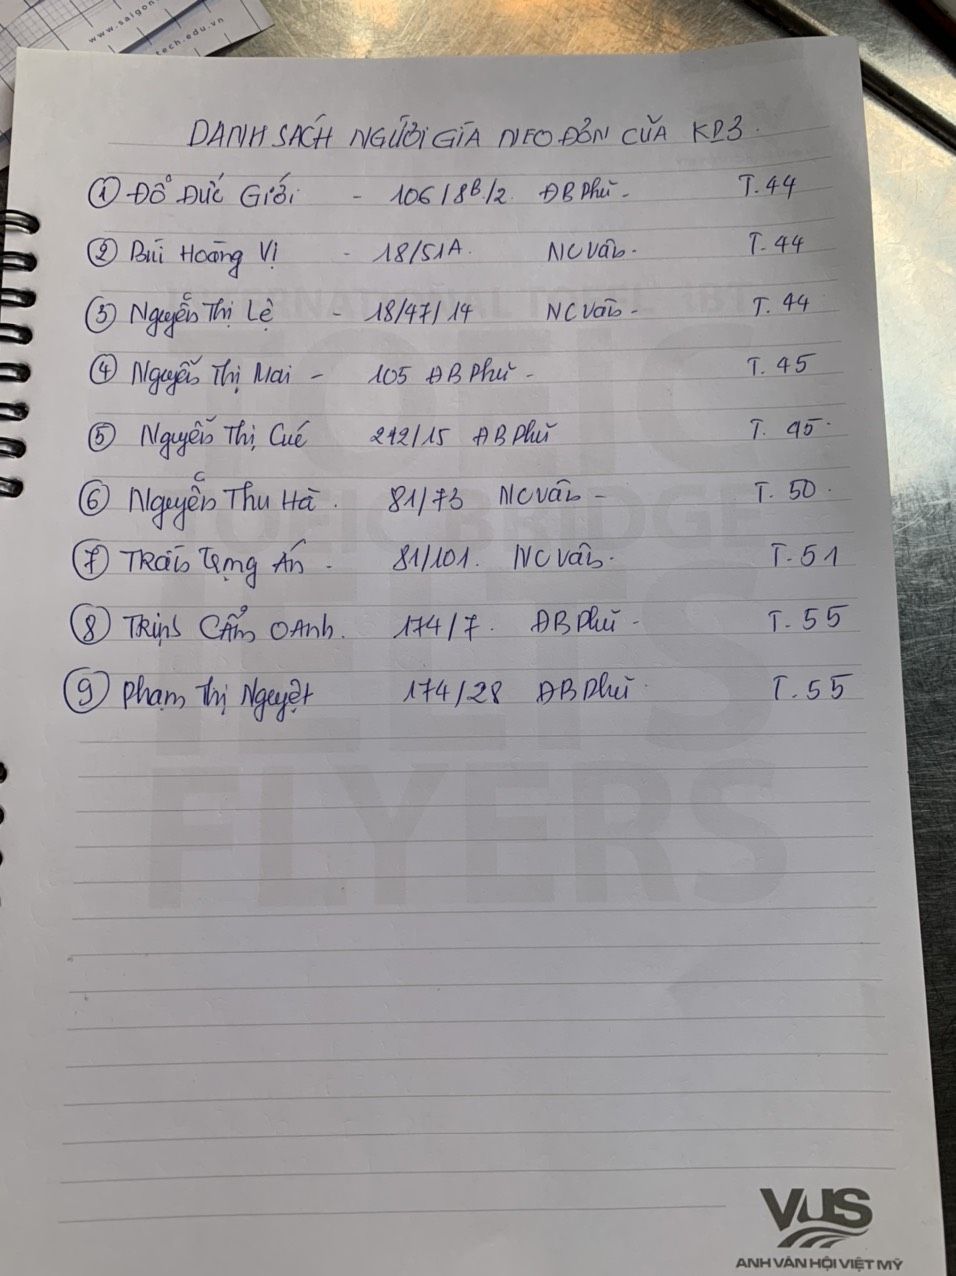 www.saigon
tech.edu.vn
DANH SÁCH NGƯỜI GIÀ NEO ĐƠN CỦA KP3.
① ĐỖ ĐỨC GIỚI. - 106/8B/2. ĐBPhủ - T.44
② Bùi Hoàng Vị - 18/51A. NCVân - T.44
③ Nguyễn Thị Lệ - 18/47/14 NCVân - T.44
④ Nguyễn Thị Mai - 105 ĐBPhủ - T.45
⑤ Nguyễn Thị Cúc 212/15 ĐBPhủ T. 45
⑥ Nguyễn Thu Hà. 81/73 NCVân - T. 50.
⑦ Trần Ấn. 81/101. NCVân. T.51
⑧ Trịnh Cẩm Oanh. 174/7. ĐBPhủ - T.55
⑨ Phạm Thị Nguyệt 174/28 ĐBPhủ T.55
TOEIC
TOEIC BRIDGE
IELTS
FLYERS
VUS
ANH VĂN HỘI VIỆT MỸ